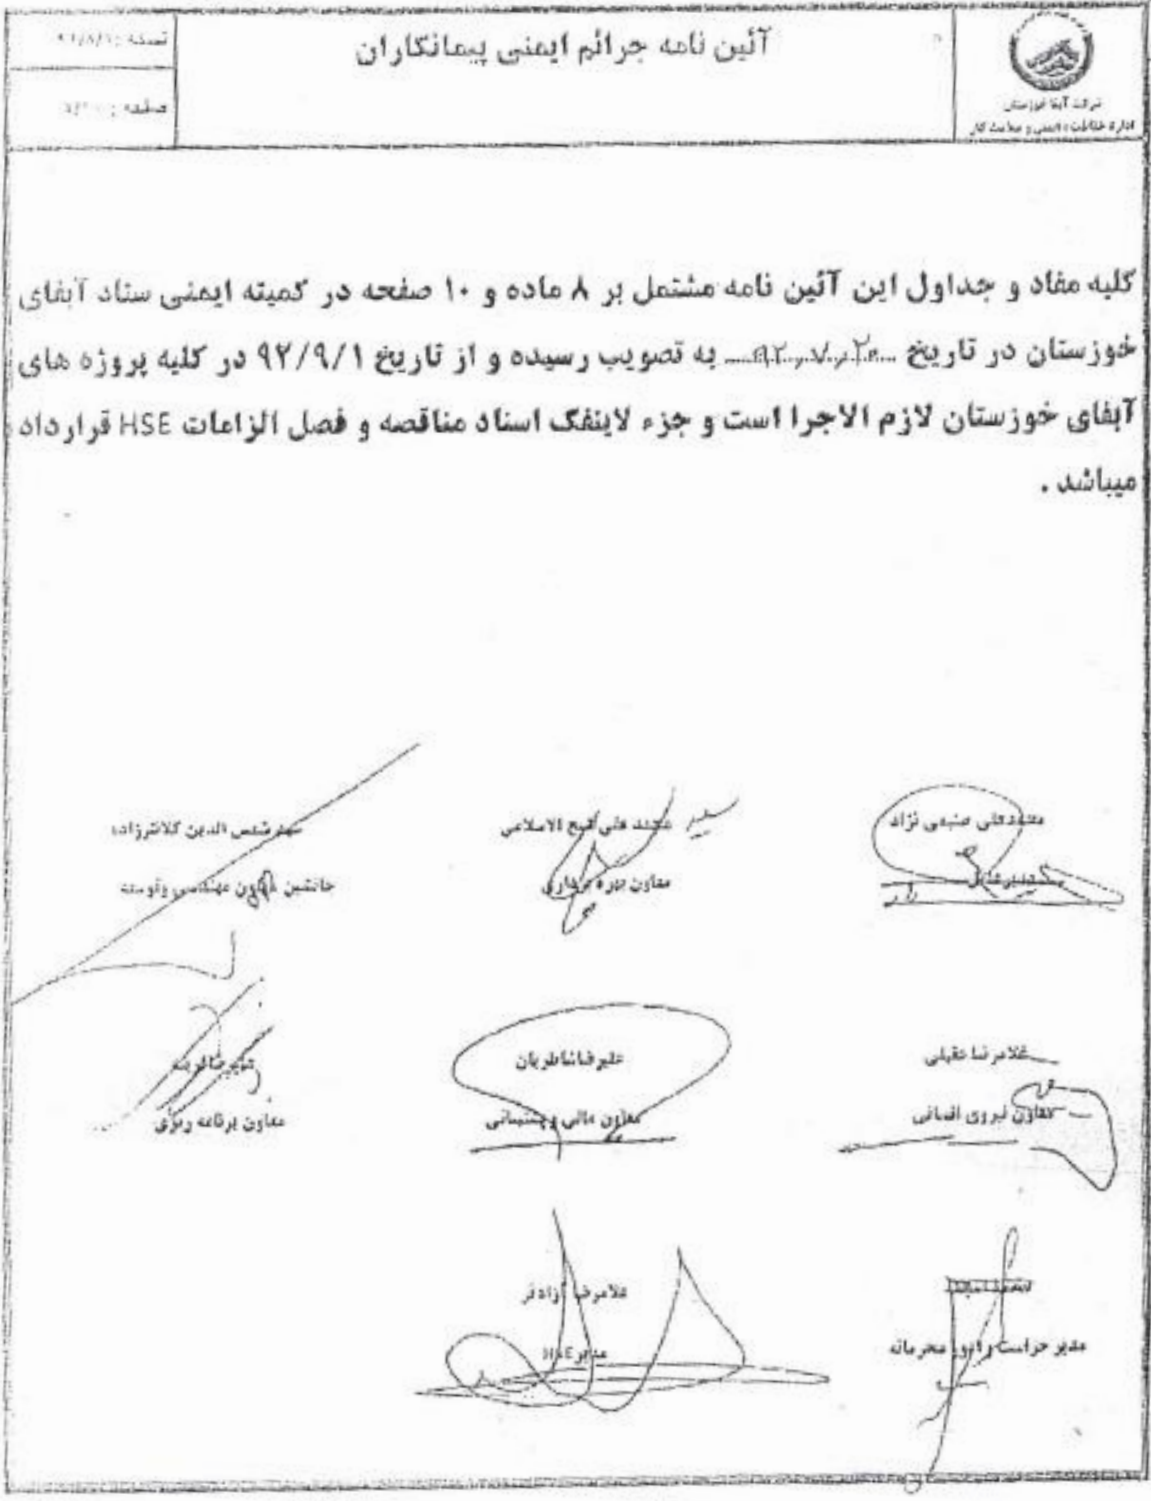 آئین نامه جرائم ایمنی پیمانکاران
شرکت آبفا خوزستان
اداره حفاظت، ایمنی و سلامت کار
نسخه :
صفحه :
کلیه مفاد و جداول این آئین نامه مشتمل بر ۸ ماده و ۱۰ صفحه در کمیته ایمنی ستاد آبفای
خوزستان در تاریخ به تصویب رسیده و از تاریخ ۹۲/۹/۱ در کلیه پروژه های
آبفای خوزستان لازم الاجرا است و جزء لاینفک اسناد مناقصه و فصل الزامات HSE قرارداد
میباشد .
محمدعلی صنیعی نژاد
مدیرعامل
محمد علی شیخ الاسلامی
معاون بهره برداری
سید شمس الدین کلانترزاده
جانشین معاون مهندسی وتوسعه
غلامرضا عقیلی
معاون نیروی انسانی
علیرضا شاطریان
معاون مالی و پشتیبانی
علیرضا
معاون برنامه ریزی
مدیر حراست و امور محرمانه
غلامرضا آزادفر
مدیر HSE